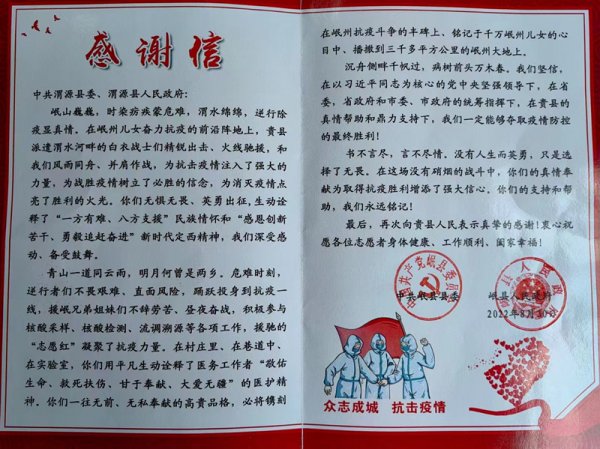 感谢信
中共渭源县委、渭源县人民政府:
岷山巍巍,时染疠疾蒙危难,渭水绵绵,逆行除
疫显真情。在岷州儿女奋力抗疫的前沿阵地上,贵县
派遣渭水河畔的白衣战士们精锐出击、火线驰援,和
我们风雨同舟、并肩作战,为抗击疫情注入了强大的
力量,为战胜疫情树立了必胜的信念,为消灭疫情点
亮了胜利的火光。你们无惧无畏、英勇出征,生动诠
释了“一方有难、八方支援”民族情怀和“感恩创新
苦干、勇毅追赶奋进”新时代定西精神,我们深受感
动、备受鼓舞。
青山一道同云雨,明月何曾是两乡。危难时刻,
逆行者们不畏艰难、直面风险,踊跃投身到抗疫一
线,援岷兄弟姐妹们不辞劳苦、昼夜奋战,积极参与
核酸采样、核酸检测、流调溯源等各项工作,援驰的
“志愿红”凝聚了抗疫力量。在村庄里、在巷道中、
在实验室,你们用平凡生动诠释了医务工作者“敬佑
生命、救死扶伤、甘于奉献、大爱无疆”的医护精
神。你们一往无前、无私奉献的高贵品格,必将镌刻
在岷州抗疫斗争的丰碑上、铭记于千万岷州儿女的心
目中、播撒到三千多平方公里的岷州大地上。
沉舟侧畔千帆过,病树前头万木春。我们坚信,
在以习近平同志为核心的党中央坚强领导下,在省
委、省政府和市委、市政府的统筹指挥下,在贵县的
真情帮助和鼎力支持下,我们一定能够夺取疫情防控
的最终胜利!
书不言尽,言不尽情。没有人生而英勇,只是选
择了无畏。在这场没有硝烟的战斗中,你们的真情奉
献为取得抗疫胜利增添了强大信心。你们的支持和帮
助,我们永远铭记!
最后,再次向贵县人民表示真挚的感谢!衷心祝
愿各位志愿者身体健康、工作顺利、阖家幸福!
中国共产党岷县委员会
岷县人民政府
中共岷县县委 岷县人民政府
2022年8月30日
众志成城 抗击疫情